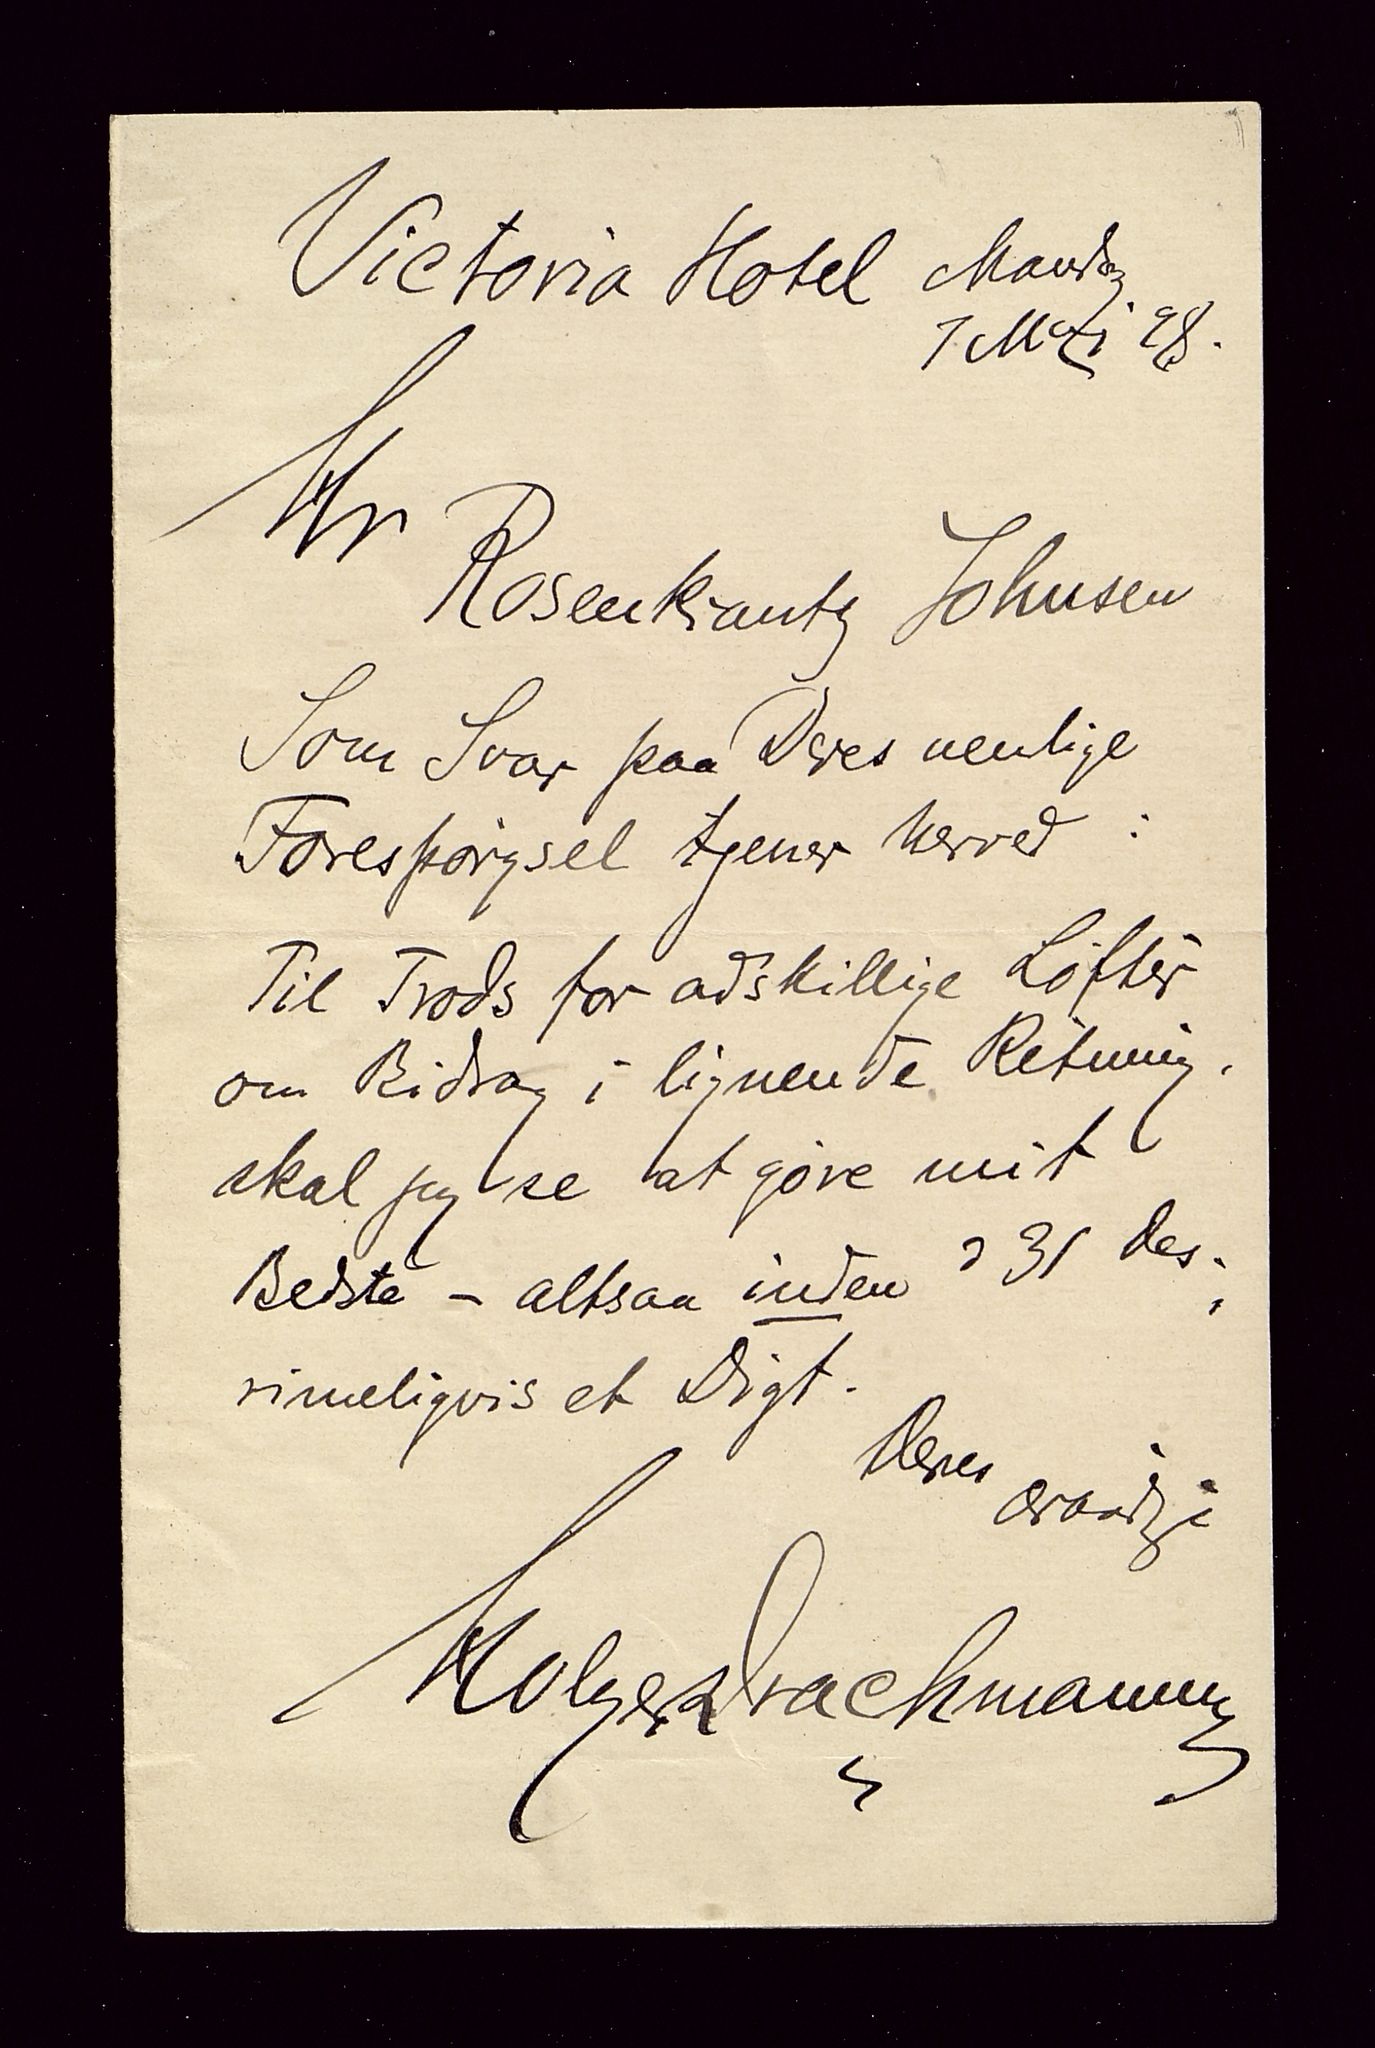 Victoria Hotel Mandag
1 Mai 98.
Hr
Rosenkrantz Johnsen
Som Svar paa Deres venlige
Forespørgsel tjener herved :
Til Trods for adskillige Løfter
om Bidrag i lignende Retning,
skal jeg se at gøre mit
Bedste – altsaa inden d 31 Des.;
rimeligvis et Digt.
Deres
ærbødige
Holger Drachmann